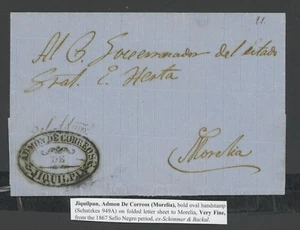 11
Al C. Governador del estado
Gral. E. Huerta
Morelia
ADMON DE CORREOS
DE
JIQUILPAN
Jiquilpan, Admon De Correos (Morelia), bold oval handstamp
(Schatzkes 949A) on folded letter sheet to Morelia, Very Fine,
from the 1867 Sello Negro period, ex-Schimmer & Backal.